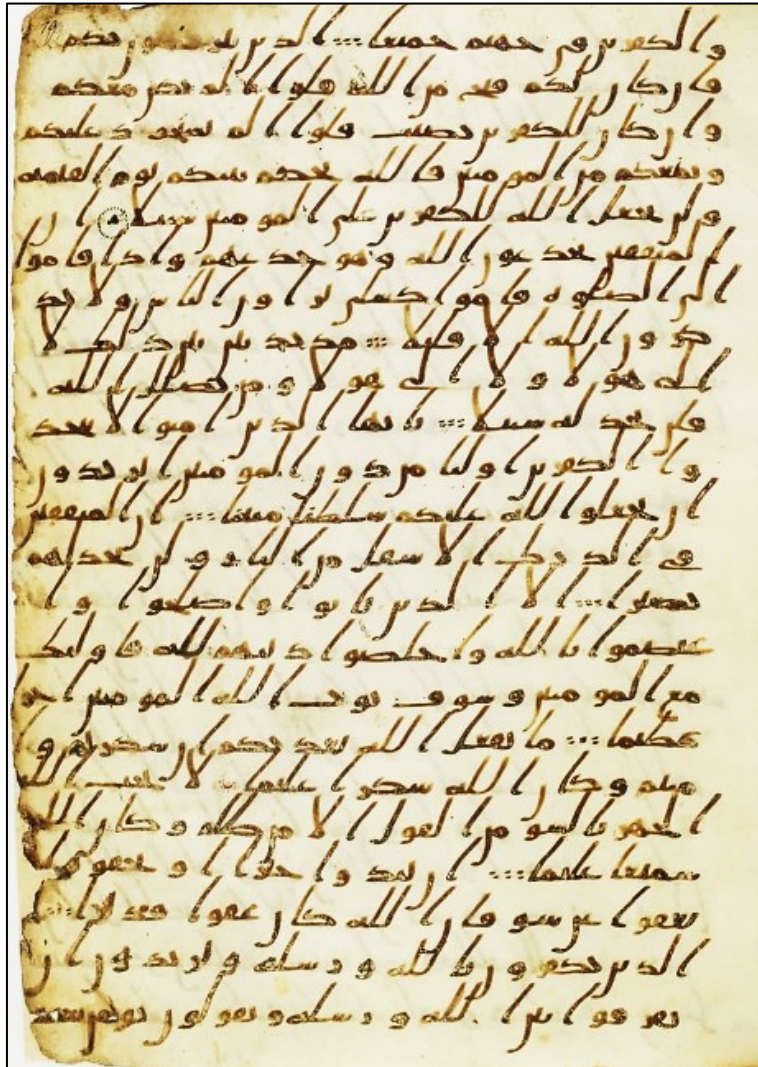 والكفرين في جهنم جميعا ؞ الذين يتربصون بكم
فان كان لكم فتح من الله قلوا الم نكن معكم
وان كان للكفرين نصيب قلوا الم نستحوذ عليكم
ونمنعكم من المومنين فالله يحكم بينكم يوم القيمه
ولن يجعل الله للكفرين على المومنين سبيلا ان
المنفقين يخدعون الله وهو خدعهم واذا قاموا
الى الصلوه قاموا كسلى يراون الناس ولا يذ
كرون الله الا قليلا ؞ مذبذبين بين ذلك لا
الى هولا ولا الى هولا ومن يضلل الله
فلن تجد له سبيلا ؞ يايها الذين امنوا لا تتخذ
وا الكفرين اوليا من دون المومنين اتريدون
ان تجعلوا لله عليكم سلطنا مبينا ؞ ان المنفقين
في الدرك الاسفل من النار ولن تجد لهم
نصيرا ؞ الا الذين تابوا واصلحوا وا
عتصموا بالله واخلصوا دينهم لله فاوليك
مع المومنين وسوف يوت الله المومنين
عظيما ؞ ما يفعل الله بعذبكم ان شكرتم وا
منتم وكان الله شكرا عليما ؞ لا يحب الله
الجهر بالسو من القول الا من ظلم وكان الله
سميعا عليما ؞ ان تبدوا خيرا او تخفوه
تعفوا عن سو فان الله كان عفوا قديرا ؞
الذين يكفرون بالله ورسله ويريدون ان
يفرقوا بين الله ورسله ويقولون نومن ببعض